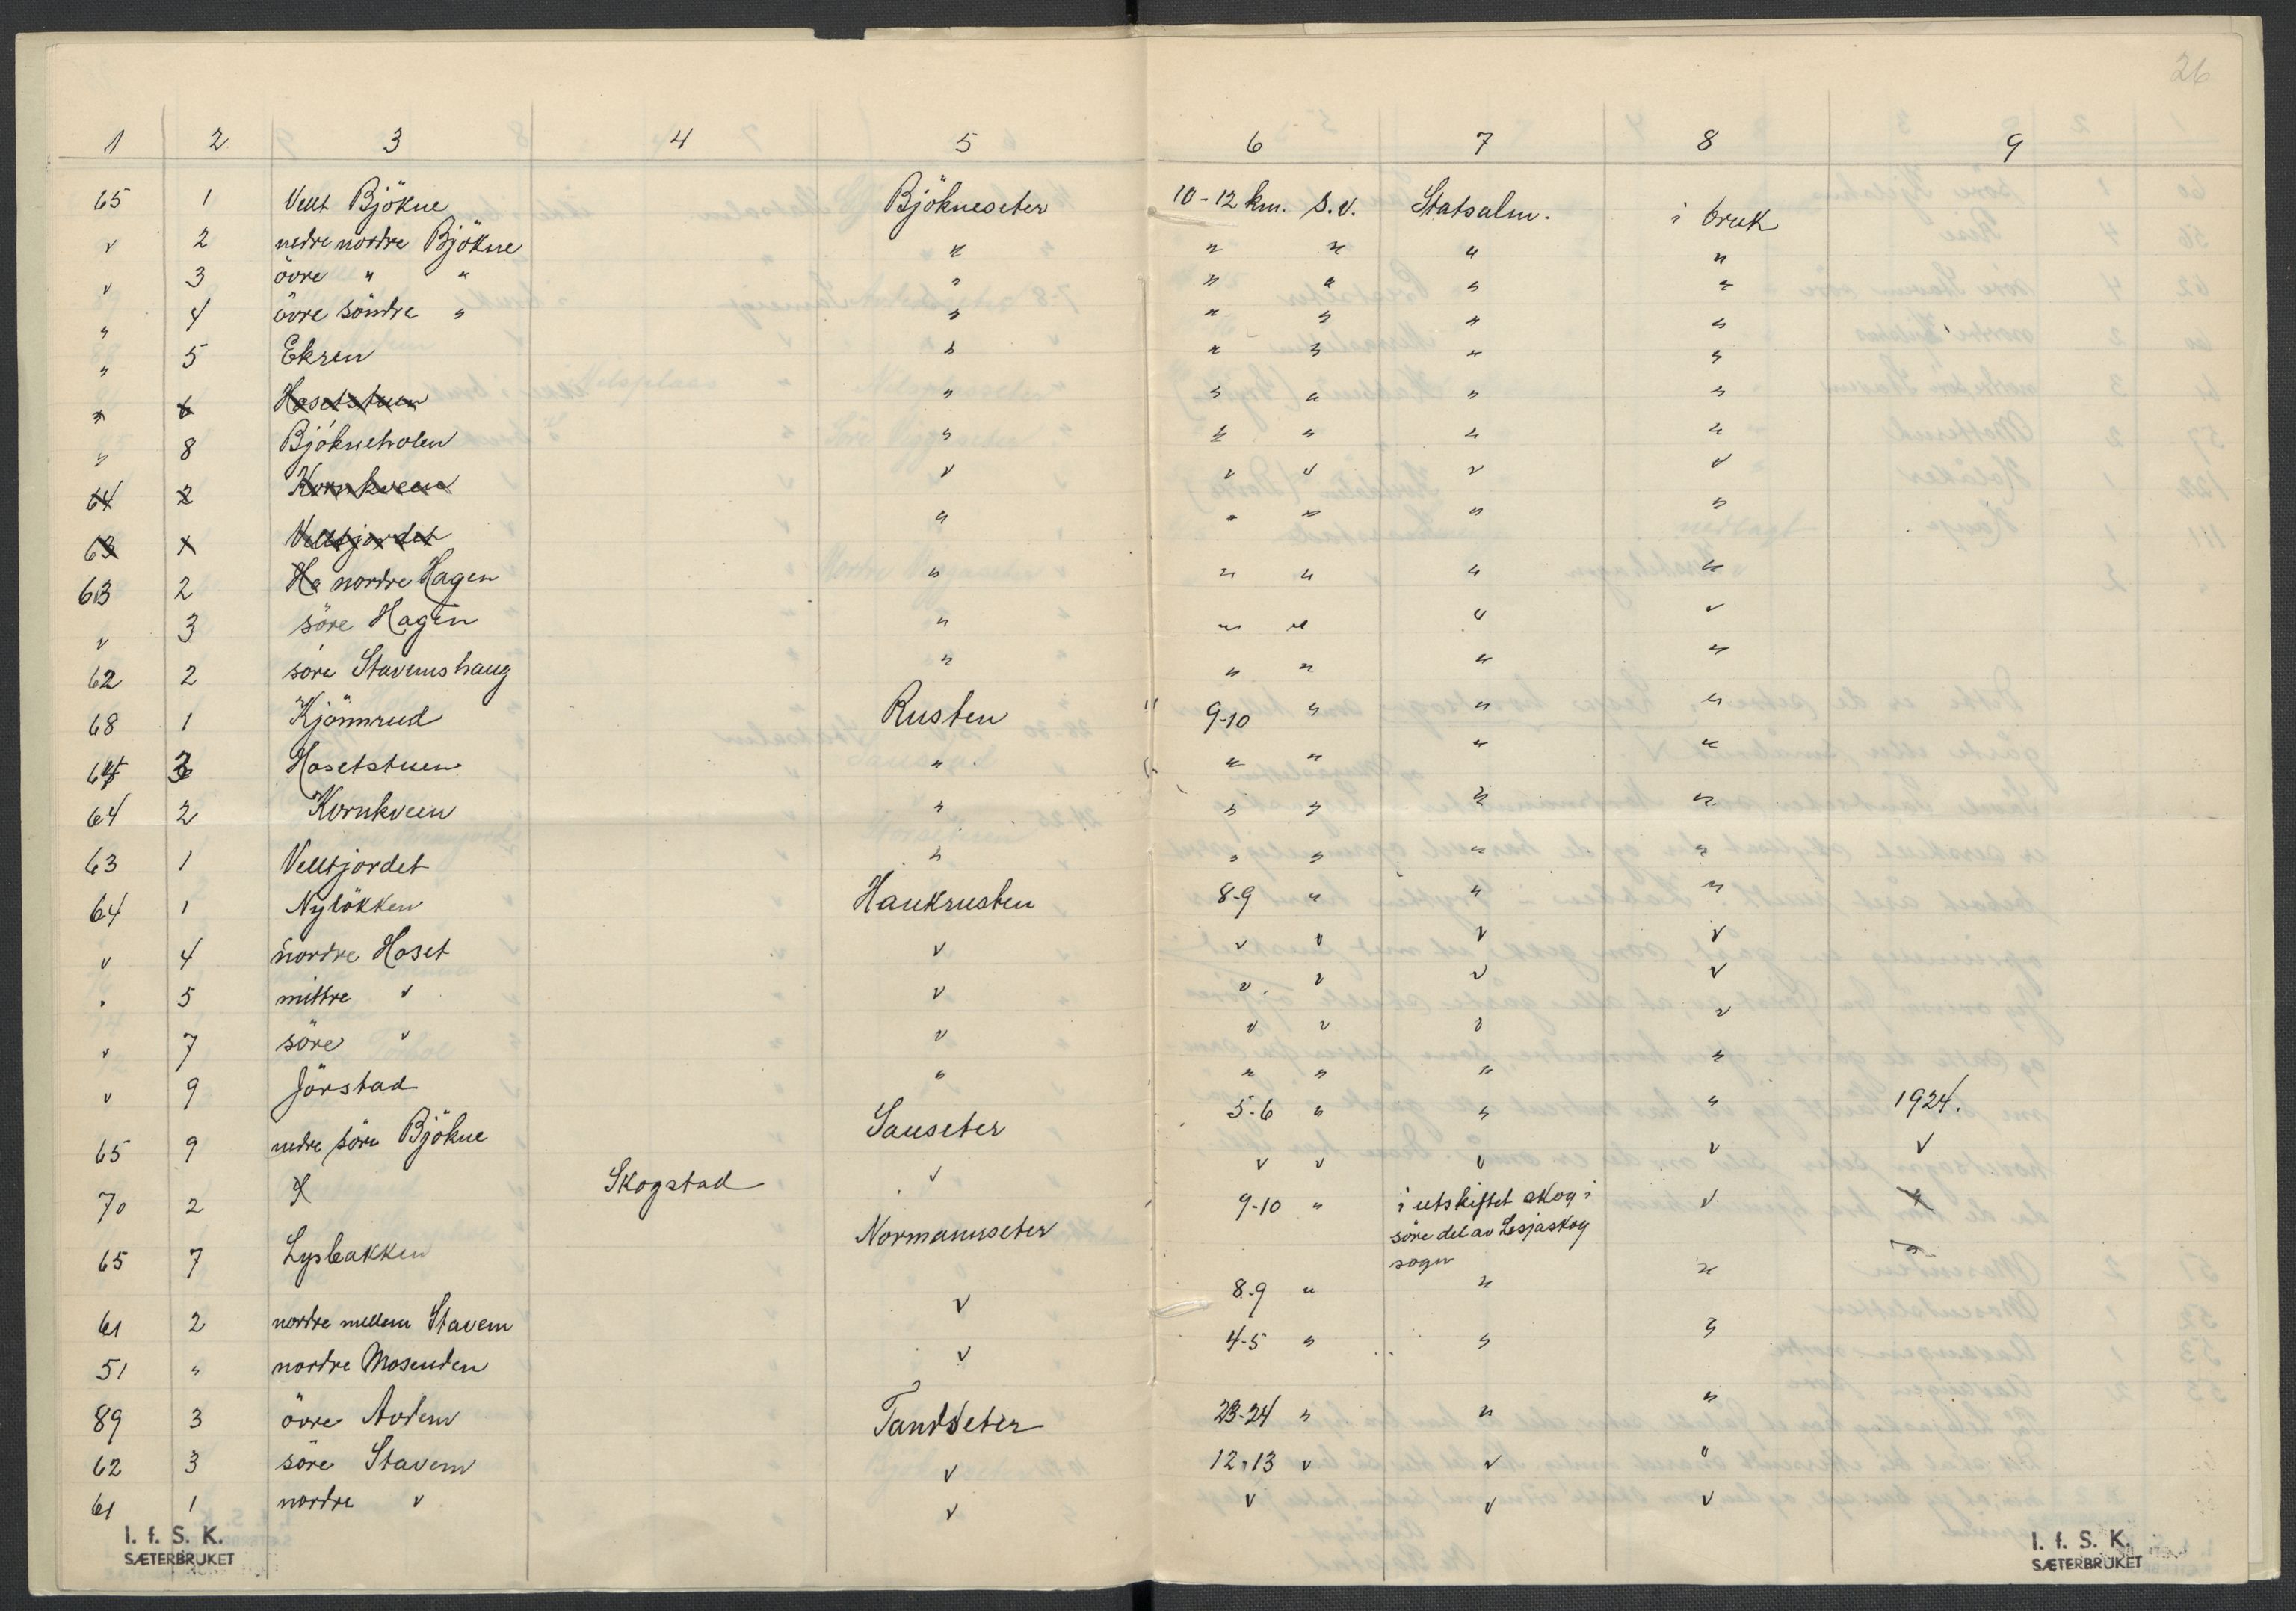 26
1 2 3 4 5 6 7 8 9
65 1 Vellt Bjökne Björkneseter 10-12 km. S.V. Statsalm. i bruk
" 2 nedre nordre Bjökne " " " " "
" 3 övre " " " " " " "
" 4 övre söndre " " " " " "
" 5 Ekren " " " " "
" 6 Hosetstuen " " " " "
" 8 Bjökneholen " " " " "
64 2 Kornkveen " " " " "
63 1 Velltjordet " " " " "
63 2 Ha nordre Hagen " " " " "
" 3 söre Hagen " " " " "
62 2 söre Stavemshaug " " " " "
68 1 Kjönnrud Rusten 9-10 " " "
64 3 Hosetstuen " " " " "
64 2 Kornkveen " " " " "
63 1 Velltjordet " " " " "
64 1 Nylökken Haukrusten 8-9 " " "
" 4 nordre Hoset " " " " "
" 5 mittre " " " " " "
" 7 söre " " " " " "
" 9 Jörstad " " " " "
65 9 nedre söre Bjökne Sauseter 5-6 " " " 1924.
70 2 Skogstad " " " " " "
65 7 Lysbakken Normannseter 9-10 " i utskiftet skog i " "
söre del av Lesjaskog
sogn
61 2 nordre mellem Stavem " 8-9 " " "
51 " nordre Mosenden " 4-5 " " "
89 3 övre Avdem Tandseter 23-24 " " "
62 3 söre Stavem " 12-13 " " "
61 1 nordre " " " " "
I. f. S. K.
SÆTERBRUKET
I. f. S. K.
SÆTERBRUKET